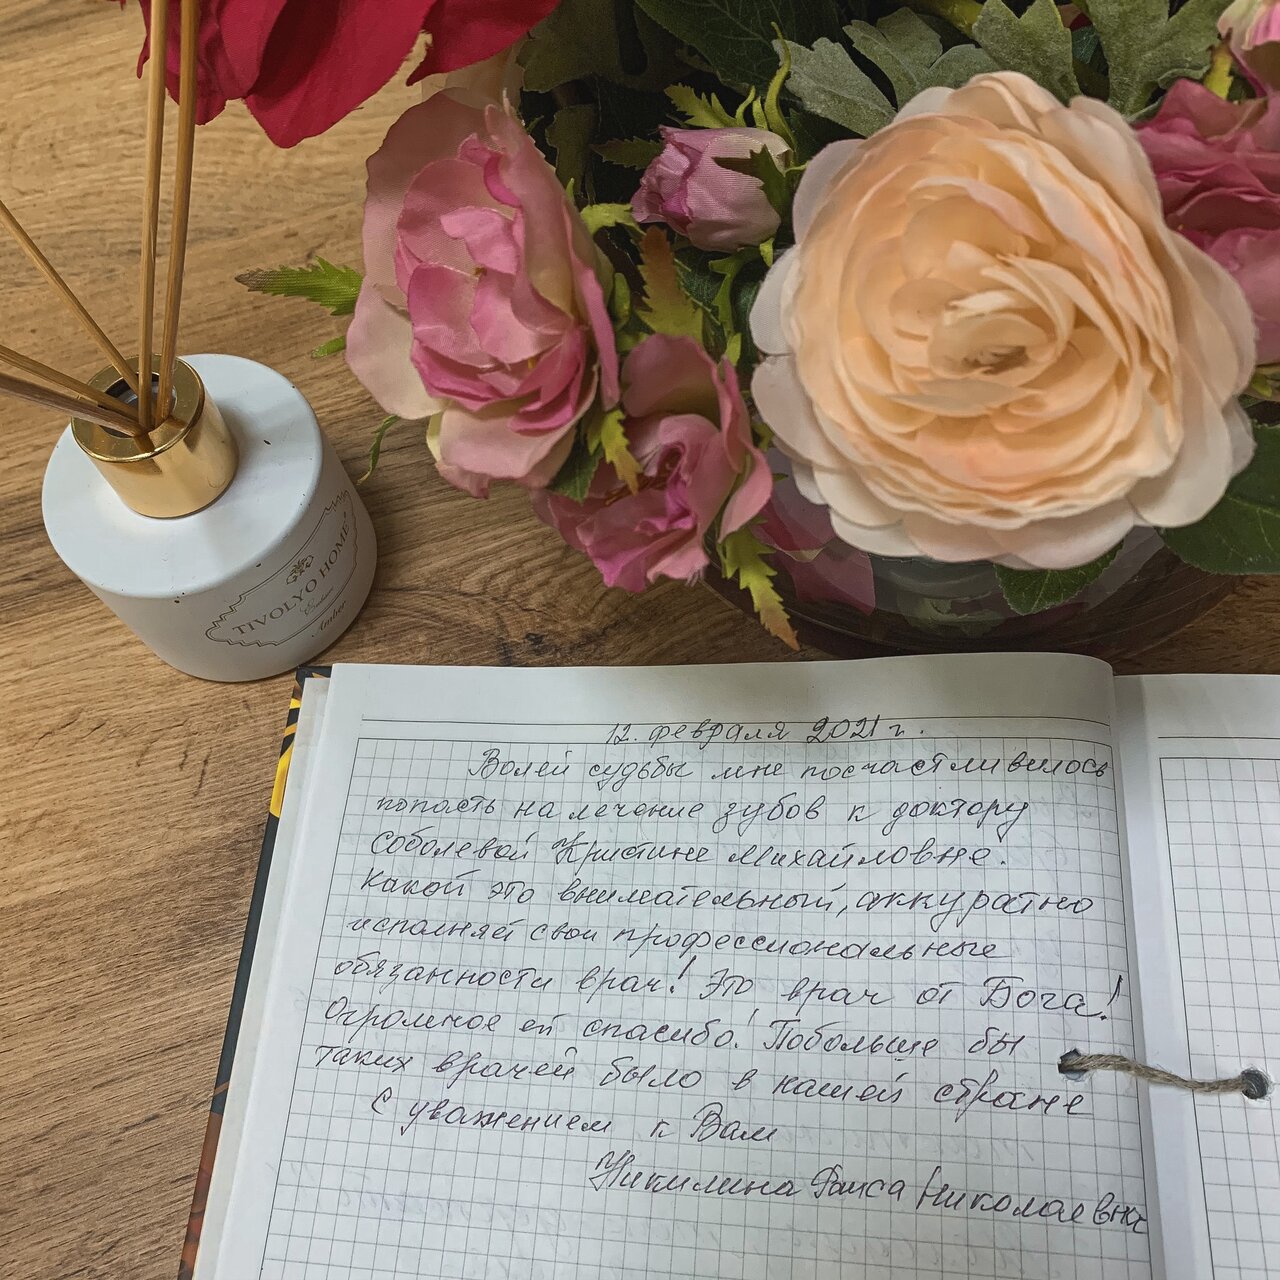 TIVOLYO HOME
Amber
12. февраля 2021 г.
Волей судьбы мне посчастливилось
попасть на лечение зубов к доктору
Соболевой Кристине Михайловне.
Какой это внимательный, аккуратно
исполняет свои профессиональные
обязанности врач! Это врач от Бога!
Огромное ей спасибо! Побольше бы
таких врачей было в нашей стране
С уважением к Вам
Раиса Николаевна